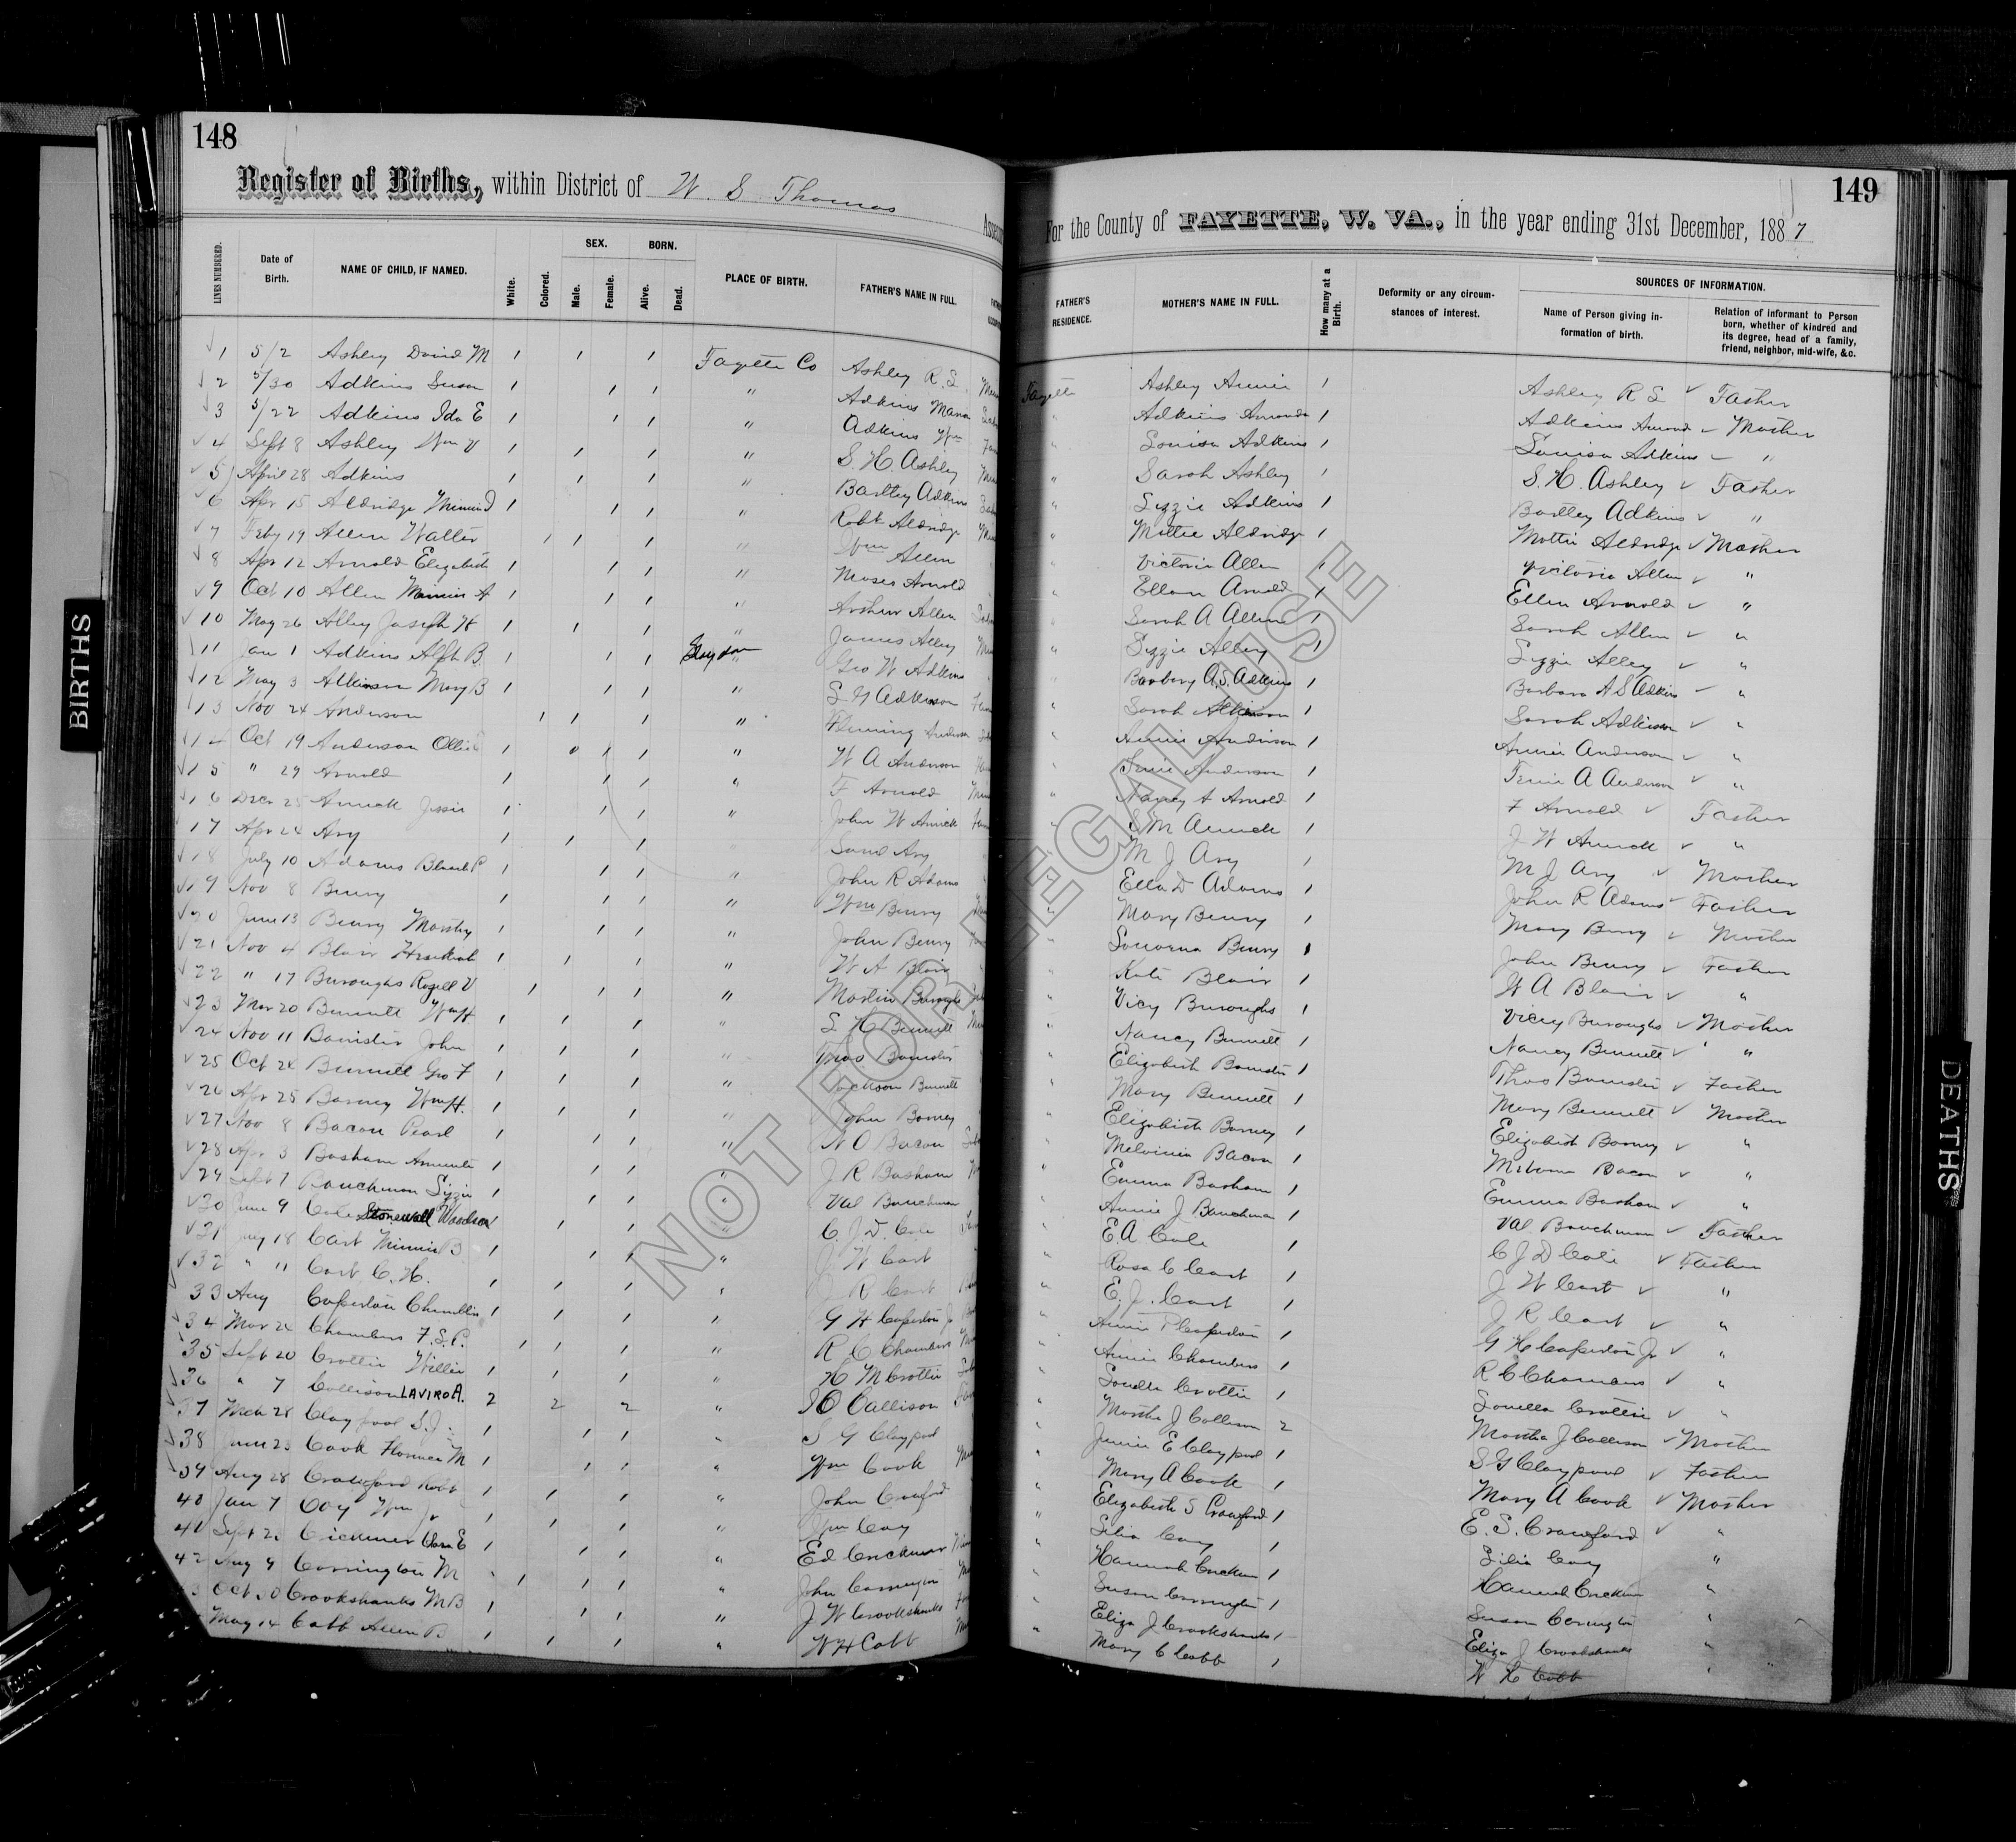 148
Register of Births, within District of W. S. Thomas
LINES NUMBERED.
Date of Birth.
NAME OF CHILD, IF NAMED.
White.
Colored.
SEX.
Male.
Female.
BORN.
Alive.
Dead.
PLACE OF BIRTH.
FATHER'S NAME IN FULL.
1 5/2 Ashley David M 1 1 1 Fayette Co Ashley R. S.
2 5/30 Adkins Susan 1 1 1 " Adkins
3 5/22 Adkins Ida E 1 1 1 " Adkins Wm
4 Sept 8 Ashley Wm V 1 1 1 " S. H. Ashley
5 April 28 Adkins 1 1 1 " Bartley Adkins
6 Apr 15 Aldridge Minnie D 1 1 1 " Robt Aldridge
7 Feby 19 Allen Walter 1 1 1 " Wm Allen
8 Apr 12 Arnold Elizabeth 1 1 1 " Moses Arnold
9 Oct 10 Allen Minnie A 1 1 1 " Arthur Allen
10 May 26 Alley Joseph H 1 1 1 " James Alley
11 Jan 1 Adkins B. 1 1 1 Geo W Adkins
12 May 3 Atkinson Mary B 1 1 1 " Adkinson
13 Nov 24 Anderson 1 1 1 " Fleming Anderson
14 Oct 19 Anderson Ollie 1 1 1 " W A Anderson
15 " 29 Arnold 1 1 1 " F Arnold
16 Dec 25 Amick Jessie 1 1 1 " John W Amick
17 Apr 24 Ary 1 1 1 " Ary
18 July 10 Adams 1 1 1 " John R Adams
19 Nov 8 Beury 1 1 1 " Wm Beury
20 June 13 Beury 1 1 1 " John Beury
21 Nov 4 Blair 1 1 1 " W A Blair
22 " 17 Buroughs V 1 1 1 " Martin Buroughs
23 Mar 20 Bennett Wm H 1 1 1 " Bennett
24 Nov 11 Banister John 1 1 1 " Thos Banister
25 Oct 24 Bennett Geo F 1 1 1 " Jackson Bennett
26 Apr 25 Barney Wm H. 1 1 1 " John Barney
27 Nov 8 Bacon Pearl 1 1 1 " N O Bacon
28 Apr 3 Basham 1 1 1 " J R Basham
29 Sept 7 Bauchman Lizzie 1 1 1 " Val Bauchman
30 June 9 Cole Stonewall Woodson 1 1 1 " C. J. D. Cole
31 18 Cart Minnie B 1 1 1 " J. W Cart
32 " 11 Cart C. H. 1 1 1 " J R Cart
33 Aug Caperton 1 1 1 " G H Caperton Jr
34 Mar 24 Chambers F. S. P. 1 1 1 " R C Chambers
35 Sept 20 Crottie Willie 1 1 1 " H M Crottie
36 " 7 Callison LAVIRO A. 2 2 2 " Callison
37 Mch 28 Claypool S. J. 1 1 1 " S G Claypool
38 June 23 Cook Florence M 1 1 1 " Wm Cook
39 Aug 28 Crawford Robt 1 1 1 " John Crawford
40 Jan 7 Coy Wm Jr 1 1 1 " Wm Coy
41 Sept Crickmer E 1 1 1 " Ed Crickmer
42 Aug 9 Carrington M 1 1 1 " John Carrington
Oct Crookshanks M B 1 1 1 " J W Crookshanks
May 14 Cobb Allen B 1 1 1 " W H Cobb
149
For the County of FAYETTE, W. VA., in the year ending 31st December, 1887
FATHER'S RESIDENCE.
MOTHER'S NAME IN FULL.
How many at a Birth.
Deformity or any circumstances of interest.
SOURCES OF INFORMATION.
Name of Person giving information of birth.
Relation of informant to Person born, whether of kindred and its degree, head of a family, friend, neighbor, mid-wife, &c.
Fayette Ashley Annie 1 Ashley R S Father
" Adkins Amanda 1 Adkins Amand Mother
" Louisa Adkins 1 Louisa Adkins "
" Sarah Ashley 1 S. H. Ashley Father
" Lizzie Adkins 1 Bartley Adkins "
" Mittie Aldridge 1 Mottie Aldridge Mother
" Victoria Allen 1 Victoria Allen "
" Ellen Arnold 1 Ellen Arnold "
" Sarah A Allen 1 Sarah Allen "
" Lizzie Alley 1 Lizzie Alley "
" Barbery A. S. Adkins 1 Barbara A S Adkins "
" Sarah Atkinson 1 Sarah Adkinson "
" Annie Anderson 1 Annie Anderson "
" Anderson 1 A Anderson "
" Nancy A Arnold 1 F Arnold Father
" S M Amick 1 J W Amick "
" M J Ary 1 M J Ary Mother
" Ella D Adams 1 John R Adams Father
" Mary Beury 1 Mary Beury Mother
" Beury 1 John Beury Father
" Kate Blair 1 W A Blair "
" Vicy Buroughs 1 Vicey Buroughs Mother
" Nancy Bennett 1 Nancy Bennett "
" Elizabeth Banister 1 Thos Banister Father
" Mary Bennett 1 Mary Bennett Mother
" Elizabeth Barney 1 Elizabeth Barney "
" Melvinia Bacon 1 Bacon "
" Emma Basham 1 Emma Basham "
" Annie J Bauchman 1 Val Bauchman Father
" E. A Cole 1 C J D Cole Father
" Rosa C Cart 1 J W Cart "
" E. J. Cart 1 J R Cart "
" Annie Caperton 1 G H Caperton Jr "
" Annie Chambers 1 R C Chambers "
" Louella Crottie 1 Louella Crottie "
" Martha J Callison 2 Martha J Callison Mother
" Jennie E Claypool 1 S G Claypool Father
" Mary A Cook 1 Mary A Cook Mother
" Elizabeth S Crawford 1 E. S. Crawford "
" Lilia Coy 1 Lilia Coy "
" Hannah Crickmer 1 Hannah "
" Susan 1 Susan "
" Eliza J Crookshanks 1 Eliza J Crookshanks "
" Mary C Cobb 1 W H Cobb "
BIRTHS
DEATHS
NOT FOR LEGAL USE